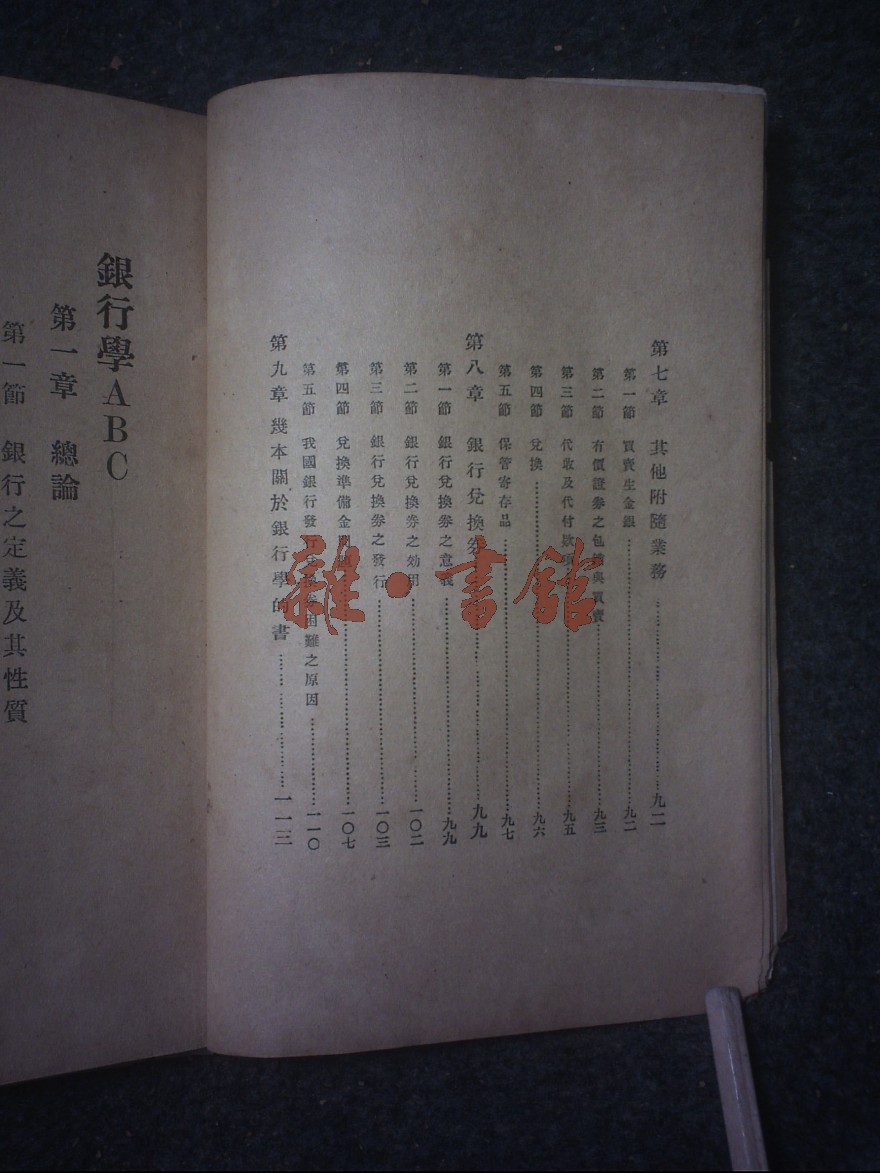 第七章 其他附隨業務……九二
第一節 買賣生金銀……九二
第二節 有價證券之包 與買賣……九三
第三節 代收及代付款項……九五
第四節 兌換……九六
第五節 保管寄存品……九七
第八章 銀行兌換券……九九
第一節 銀行兌換券之意義……九九
第二節 銀行兌換券之効用……一〇二
第三節 銀行兌換券之發行……一〇三
第四節 兌換準備金……一〇七
第五節 我國銀行發行兌換券困難之原因……一一〇
第九章 幾本關於銀行學的書……一一三
銀行學ABC
第一章 總論
第一節 銀行之定義及其性質
雜·書館